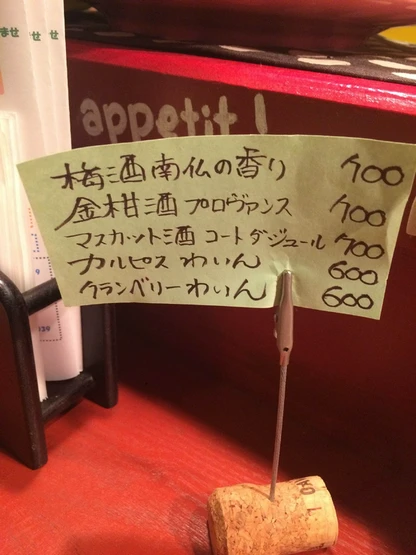 ませ
せ
せ
appetit!
梅酒南仏の香り 700
金柑酒 プロヴァンス 700
マスカット酒 コートダジュール 700
カルピスわいん 600
クランベリーわいん 600